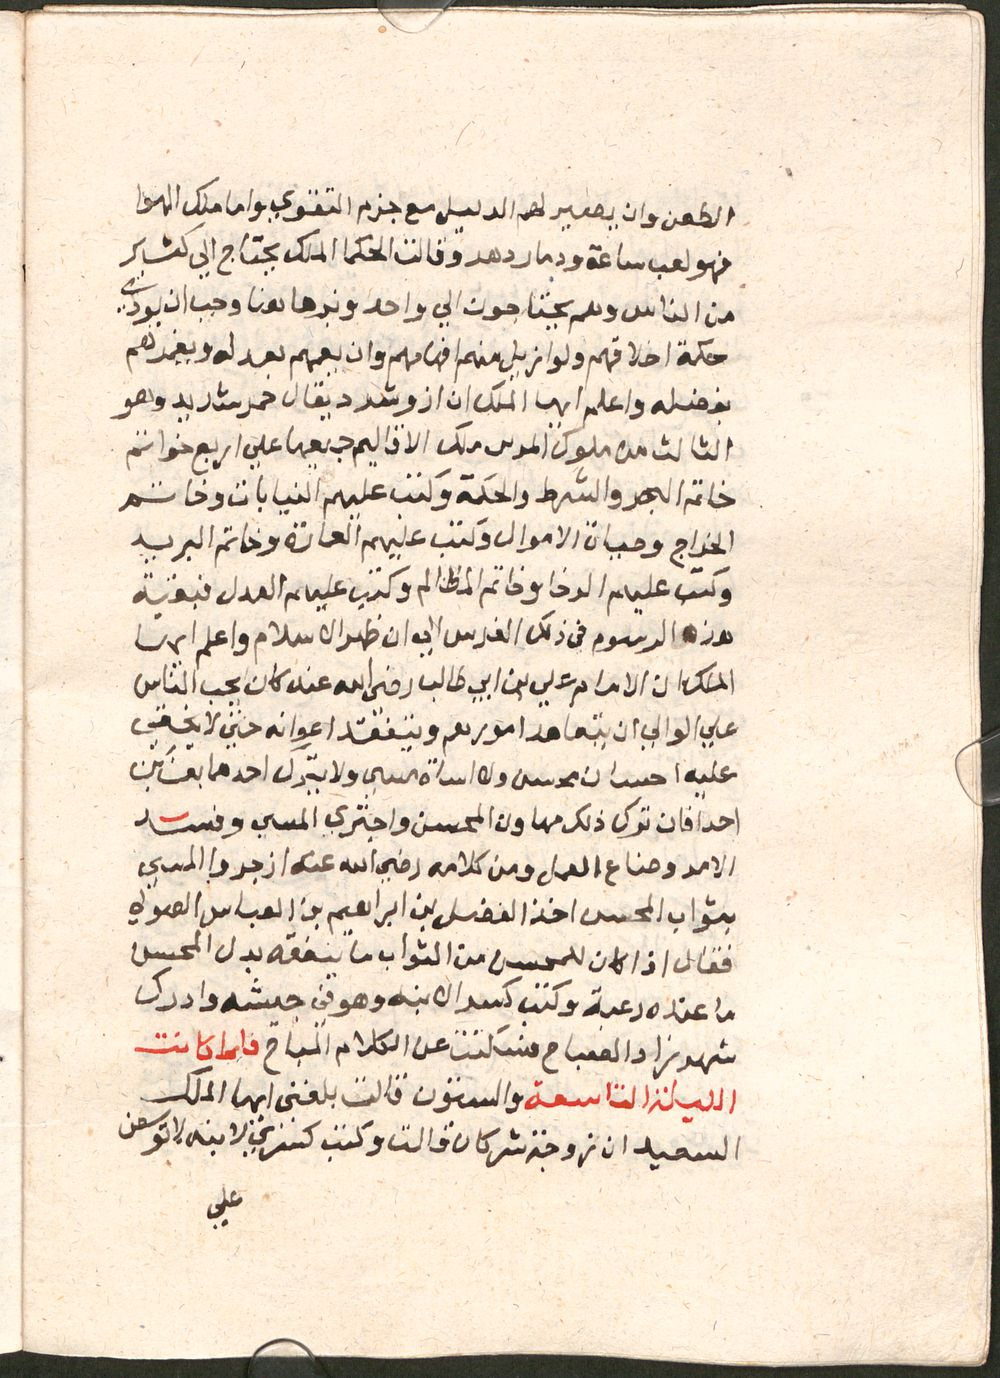 الطعن وان يصير لهم الدليل مع جزم التقوي واما ملك الهوا
فهو لعب ساعة ودمار دهر وقالت الحكما الملك يحتاج الي كثير
من الناس وهم يحتاجون الي واحد وجب ان يودي
حكمة اخلاقهم وان يعمهم بعدله ويغمرهم
بفضله واعلم ايها الملك ان ازدشر ديقال جمر شديد وهو
الثالث من ملوك الفرس ملك الاقاليم جميعها علي اربع خواتم
خاتم البحر والشرط والحكمة وكتب عليهم النيابات وخاتم
الخراج وجباة الاموال وكتب عليهم العمارة وخاتم البريد
وكتب عليهم الرخا وخاتم المظالم وكتب عليهم العدل فبقية
هذه الرسوم في ذلك الفرس الي ان ظهر الاسلام واعلم ايها
الملك ان الامام علي بن ابي طالب رضي الله عنه كان يجب الناس
علي الوالي ان يتعاهد امورهم ويتفقد اعوانه حتي لا يخفي
عليه احسان محسن ولا اساة مسي ولا يترك احدهما بغير
احدا فان ترك ذلك تهاون المحسن واجتري المسي وفسد
الامر وضاع العمل ومن كلامه رضي الله عنه ازجروا المسي
بثواب المحسن اخذ الفضل بن ابراهيم بن العباس الصولي
فقال اذا كان للمحسن من الثواب ما ينفقه بدل المحسن
ما عنده رغبة وكتب كسرا لابنه وهو في جيشه وادرك
شهرزاد الصباح فسكتت عن الكلام المباح فلما كانت
الليلة التاسعة والستون قالت بلغني ايها الملك
السعيد ان زوجة شركان قالت وكتب كسري لابنه لا توسعن
علي